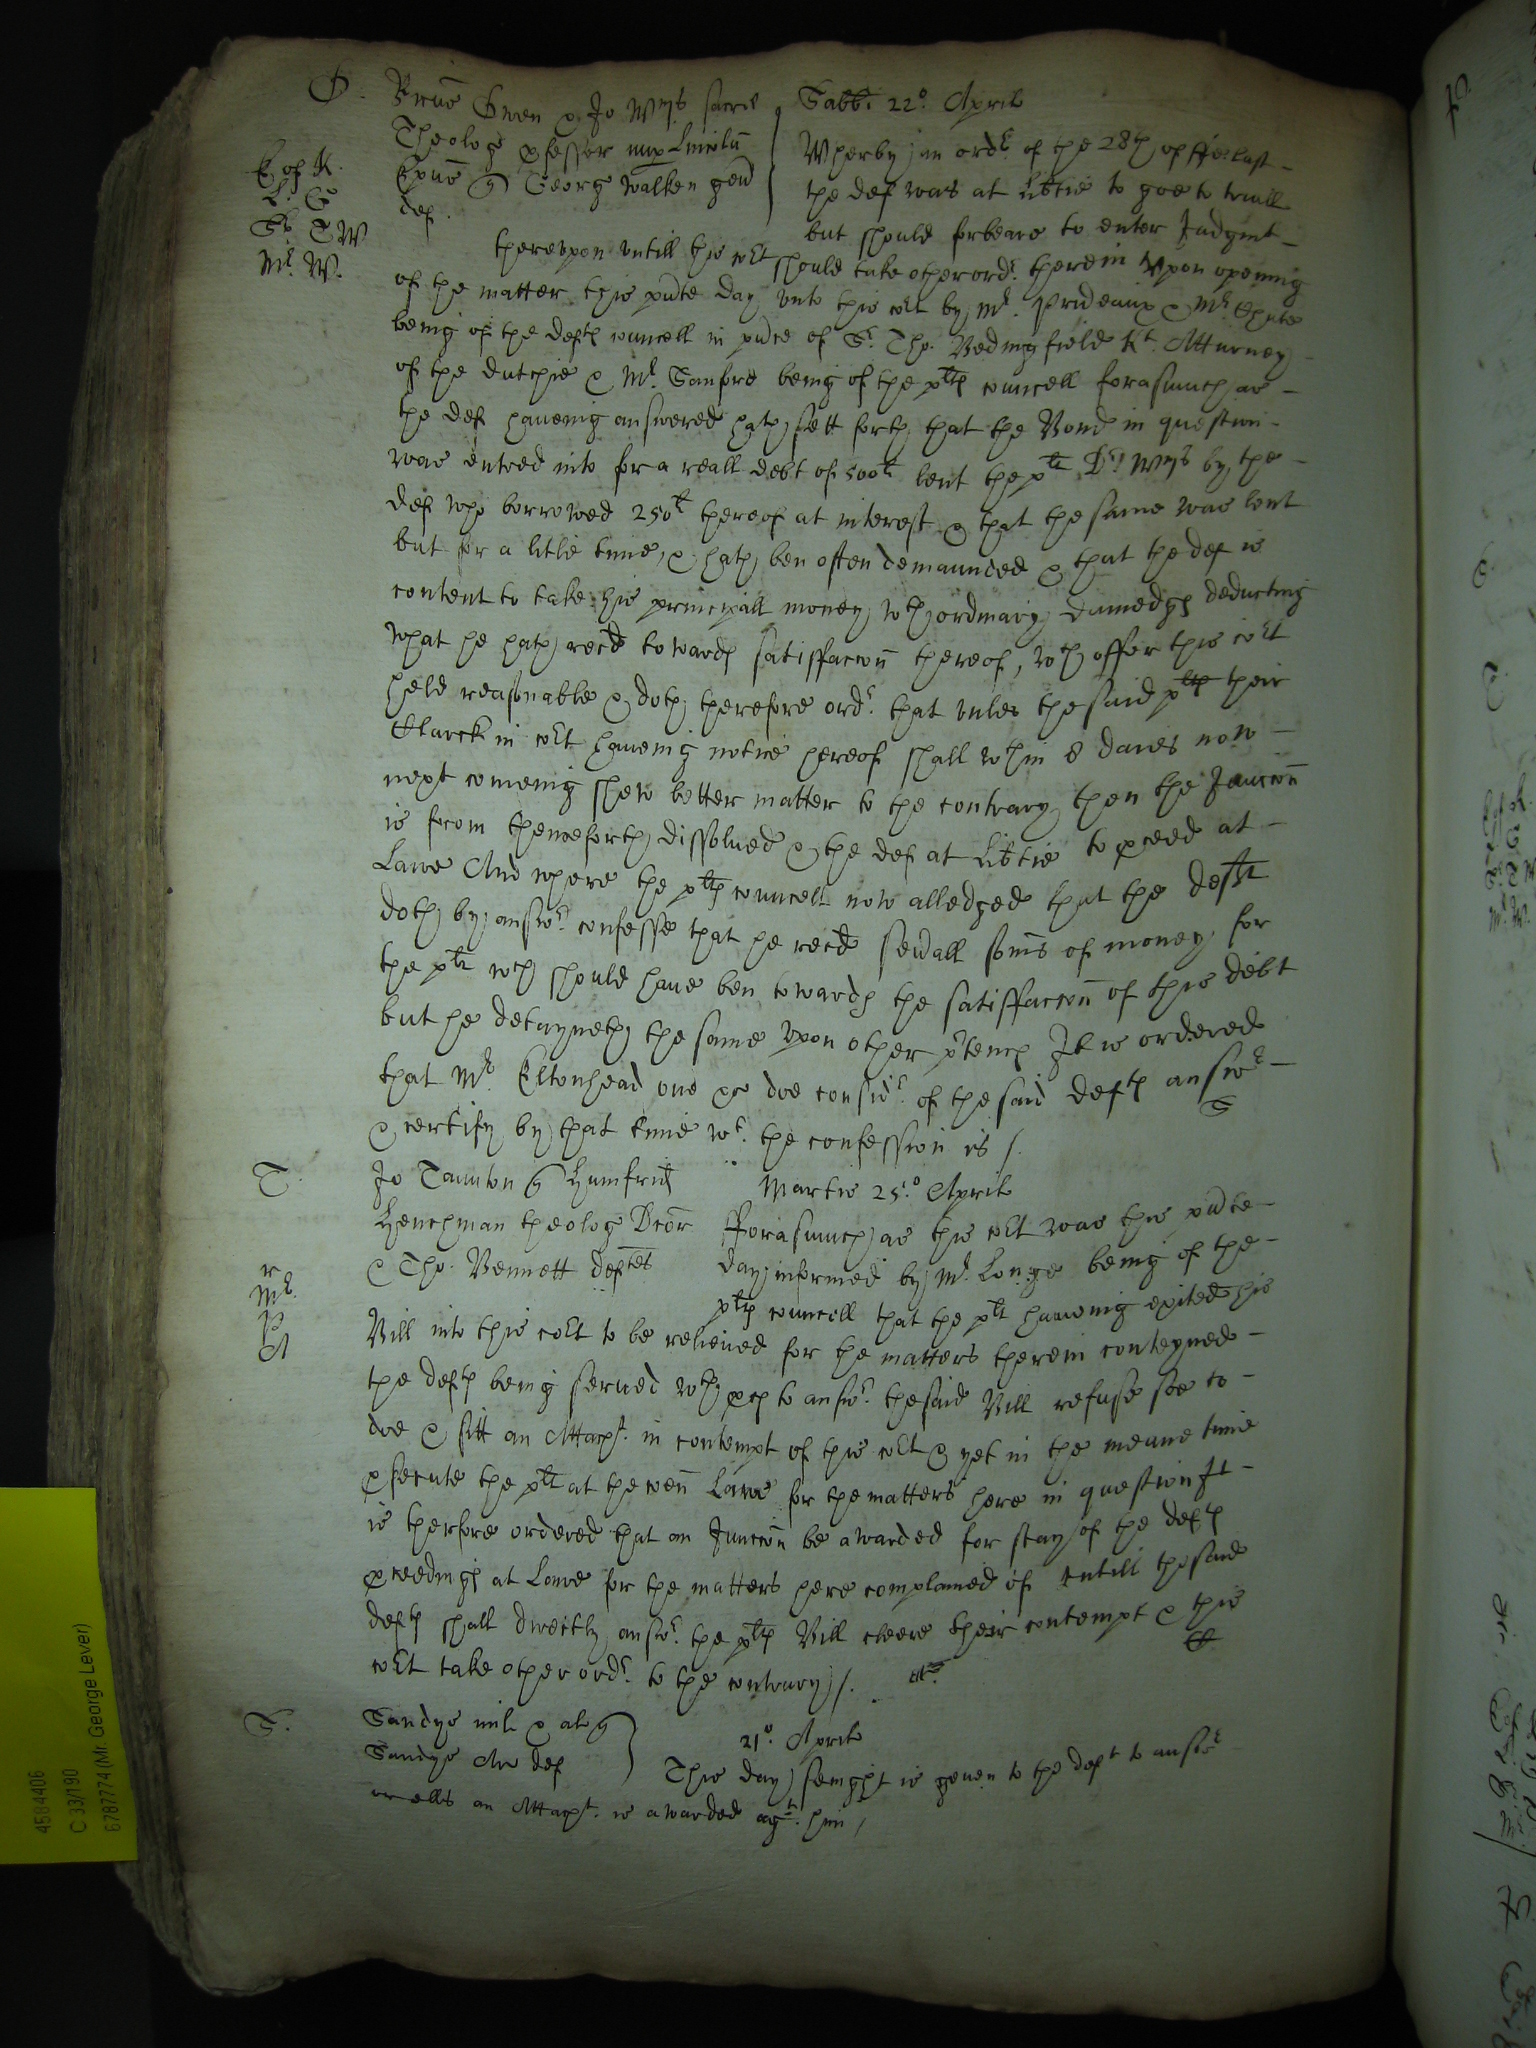 O. Bruno Owen & Jo Wms sacre
Theolog pfessor nup Lincoln
Epus q George Walker gen
def.
E of K.
L: G
Sr. T W
Mr. W.
Sabbi 22o. Aprilis
Wherby an ordr. of the 28th of ffe: last
the def was at libtie to goe to triall
but should forbeare to enter Judgmt
therevpon vntill this cort should take other ordr. therein Vpon opening
of the matter this pnte day vnto this cort by Mr. Prideaux & Mr. Chute
being of the defts councell in pnce of Sr. Tho. Bedingfield Kt. Atturney
of the dutchie & Mr. Sanford being of the plts councell forasmuch as
the def haueing answered hath sett forth that the Bond in question
was entred into for a reall debt of 500li lent the plt Dr. Wms by the
def who borrowed 250li thereof at interest & that the same was lent
but for a litle time, & hath ben often demaunded & that the def is
content to take his principall money wth ordinary damedgs deducting
what he hath recd towards satisfaccon thereof, wch offer this cort
held reasonable & doth therefore ordr. that vnles the said plts their
Clarck in cort haueing notice hereof shall wthin 8 daies now
next comeing shew better matter to the contrary then the Juncion
is from thenceforth dissolued & the def at libtie to pceed at
Lawe And where the plts councell now alledged that the deft
doth by answr. confesse that he recd seuall soms of money for
the plt wch should haue ben towards the satisfaccon of this debt
but he detayneth the same vpon other ptence It is ordered
that Mr. Eltonhead one &c doe considr. of the said defts answr
& certify by that time wt. the confession is /.
S
T. Jo Taunton q Humfrid
Henchman theolog Dcor
& Tho. Bennett deftes
r
Mr.
P
A
Martis 25.o Aprilis
fforasmuch as this cort was this pnte
day informed by Mr. Longe being of the
plts councell that the plt haueing exited his
Bill into this cort to be relieued for the matters therein conteyned
the defts being serued wth pces to answr. the said Bill refuse soe to
doe & sitt an Attachmt. in contempt of this cort & yet in the meane time
psecute the plt at the coen Lawe for the matters here in question It
is therfore ordered that an Juncion be awarded for stay of the defts
pceedings at Lawe for the matters here complained of vntill the said
defts shall directly answr. the plts Bill cleere their contempt & this
cort take other ordr. to the contrary /.
S. Sandys mil & al q
Sandys Ar def
21o. Aprilis
This day senight is geuen to the deft to answr
or ells an Attachmt. is awarded agt. him /
4584406
C 33/190
6787774 (Mr. George Lever)